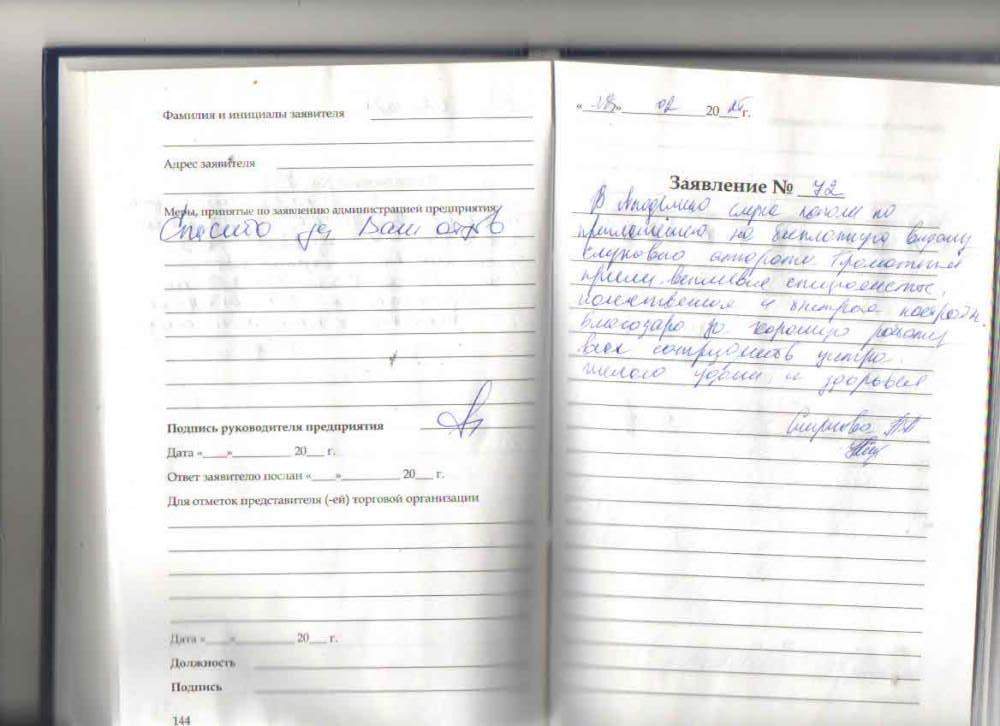 Фамилия и инициалы заявителя
Адрес заявителя
Меры, принятые по заявлению администрацией предприятия
Спасибо за Ваш отзыв
Подпись руководителя предприятия
Дата «____»__________ 20___ г.
Ответ заявителю послан «____»__________ 20___ г.
Для отметок представителя (-ей) торговой организации
Дата «____»__________ 20___ г.
Должность
Подпись
144
«18» 02 20 г.
Заявление № 72
В Академию слуха попали по
приглашению на бесплатную выдачу
слухового аппарата. Грамотный
прием, вежливые специалисты,
качественная и быстрая настройк.
Благодарю за хорошую работу
всех сотрудников центра.
Желаю удачи и здоровья
Смирнова